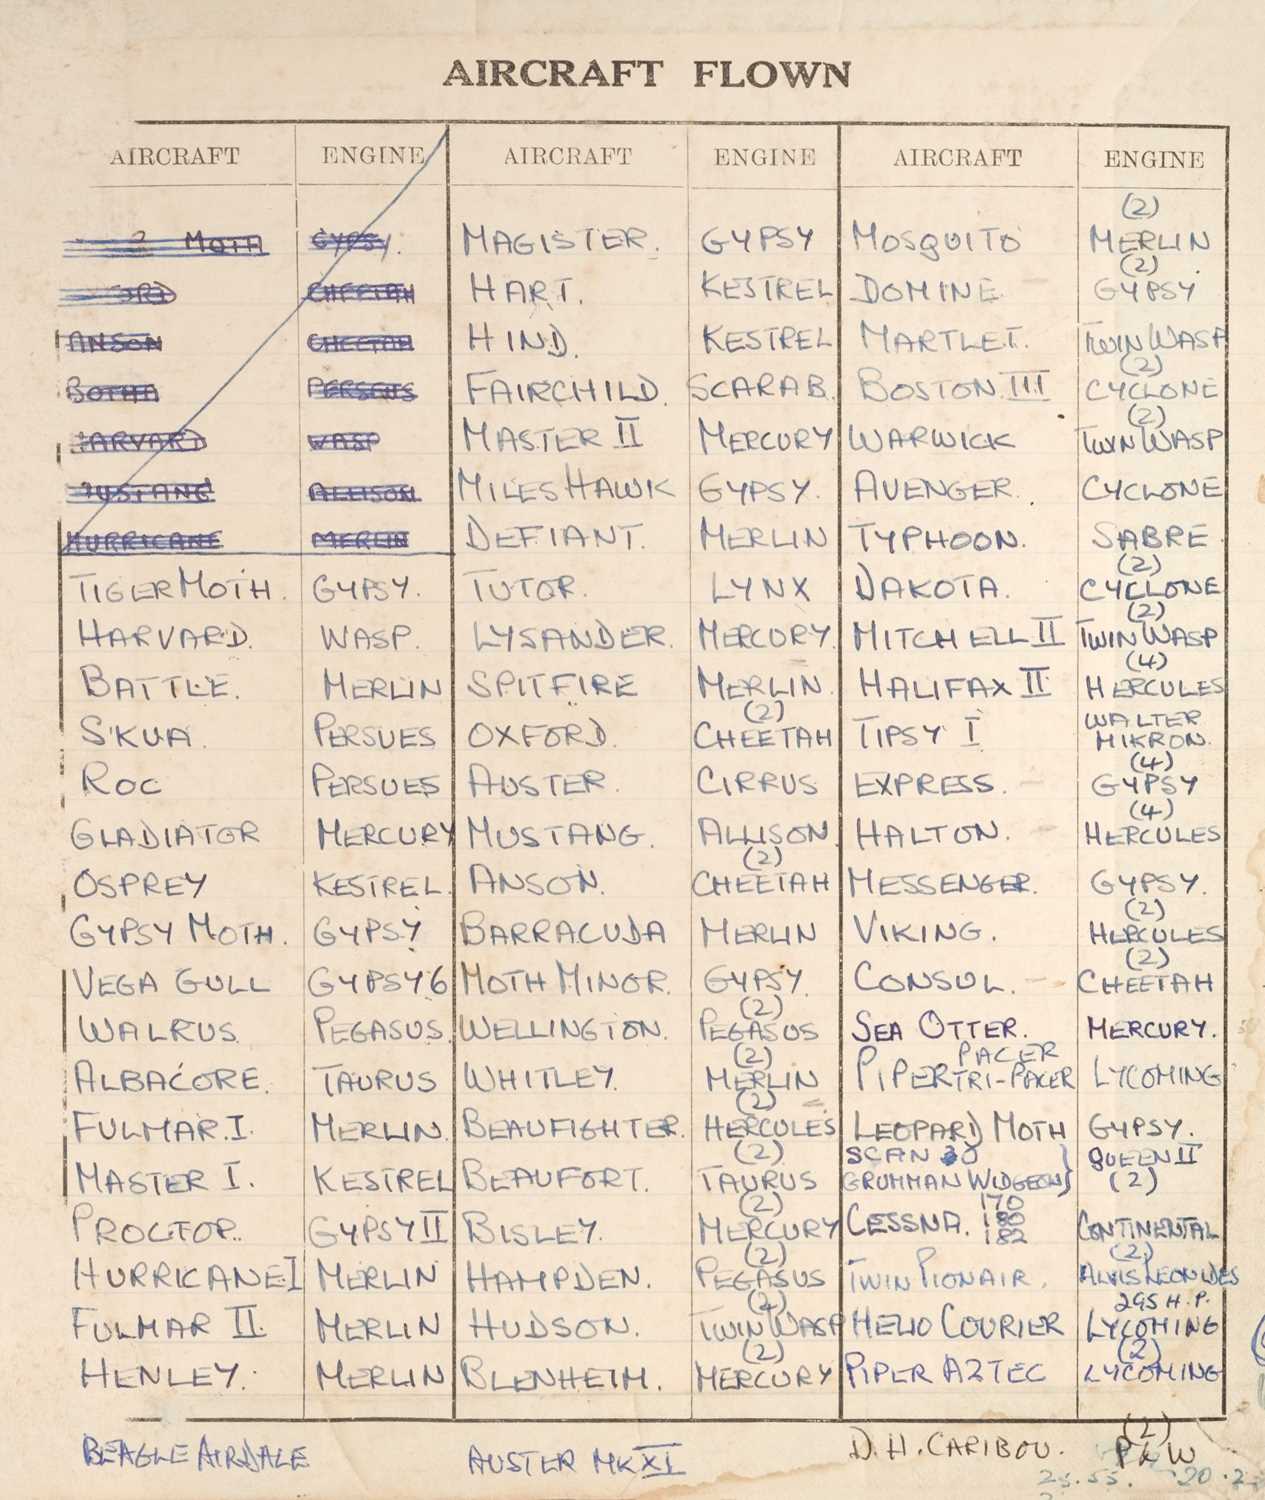 AIRCRAFT FLOWN
AIRCRAFT ENGINE AIRCRAFT ENGINE AIRCRAFT ENGINE
(2)
MOTH GYPSY. MAGISTER. GYPSY MOSQUITO MERLIN
(2)
CHEETAH HART. KESTREL DOMINE GYPSY
ANSON CHEETAH HIND. KESTREL MARTLET. TWIN WASP
(2)
BOTHA PERSEUS FAIRCHILD. SCARAB. BOSTON III CYCLONE
(2)
HARVARD WASP MASTER II MERCURY WARWICK TWIN WASP
MUSTANG ALLISON MILES HAWK GYPSY. AVENGER. CYCLONE
HURRICANE MERLIN DEFIANT. MERLIN TYPHOON. SABRE
(2)
TIGER MOTH. GYPSY. TUTOR. LYNX DAKOTA. CYCLONE
(2)
HARVARD. WASP. LYSANDER. MERCURY. MITCHELL II TWIN WASP
(4)
BATTLE. MERLIN SPITFIRE MERLIN. HALIFAX II HERCULES
(2) WALTER
SKUA. PERSUES OXFORD. CHEETAH TIPSY I MIKRON.
(4)
ROC PERSUES AUSTER. CIRRUS EXPRESS. GYPSY
(4)
GLADIATOR MERCURY MUSTANG. ALLISON. HALTON. HERCULES
(2)
OSPREY KESTREL. ANSON. CHEETAH MESSENGER. GYPSY.
(2)
GYPSY MOTH. GYPSY BARRACUDA MERLIN VIKING. HERCULES
(2)
VEGA GULL GYPSY 6 MOTH MINOR. GYPSY. CONSUL. CHEETAH
(2)
WALRUS PEGASUS. WELLINGTON. PEGASUS SEA OTTER. MERCURY.
(2) PACER
ALBACORE. TAURUS WHITLEY. MERLIN PIPER TRI-PACER LYCOMING
(2)
FULMAR. I. MERLIN. BEAUFIGHTER. HERCULES LEOPARD MOTH GYPSY.
(2) SCAN 30 QUEEN II
MASTER I. KESTREL BEAUFORT. TAURUS GRUMMAN WIDGEON} (2)
(2) 170
PROCTOR. GYPSY II BISLEY. MERCURY CESSNA. 180 CONTINENTAL
182
(2) (2)
HURRICANE I MERLIN HAMPDEN. PEGASUS TWIN PIONAIR. ALVIS LEONIDES
(2) 295 H.P.
FULMAR II. MERLIN HUDSON. TWIN WASP HELIO COURIER LYCOMING
(2) (2)
HENLEY. MERLIN BLENHEIM. MERCURY PIPER AZTEC LYCOMING
(2)
BEAGLE AIRDALE AUSTER MK XI D.H. CARIBOU. P & W